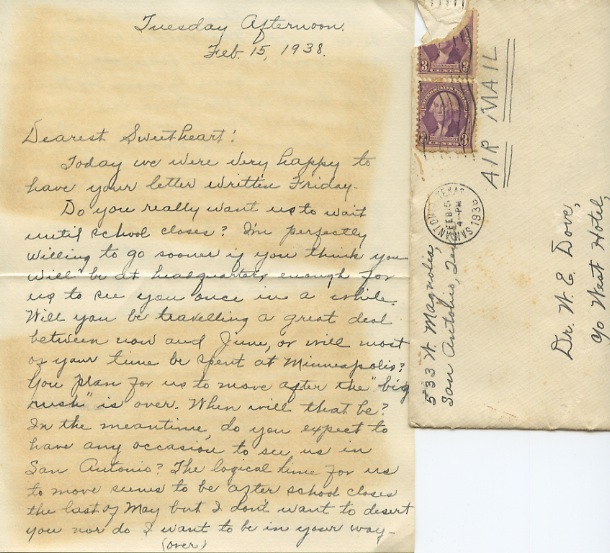 Tuesday Afternoon.
Feb. 15, 1938.
Dearest Sweetheart!
Today we were very happy to
have your letter written Friday.
Do you really want us to wait
until school closes? I'm perfectly
willing to go sooner if you think you
will be at headquarters enough for
us to see you once in a while.
Will you be travelling a great deal
between now and June, or will most
of your time be spent at Minneapolis?
You plan for us to move after the "big
rush" is over. When will that be?
In the meantime, do you expect to
have any occasion to see us in
San Antonio? The logical time for us
to move seems to be after school closes
the last of May but I don't want to desert
you nor do I want to be in your way-
(over)
AIR MAIL
533 W. Magnolia,
San Antonio, Tex
Dr. W. E. Dove,
c/o West Hotel,
SAN ANTONIO, TEXAS
FEB 15
4-PM
1938
3 CENTS 3